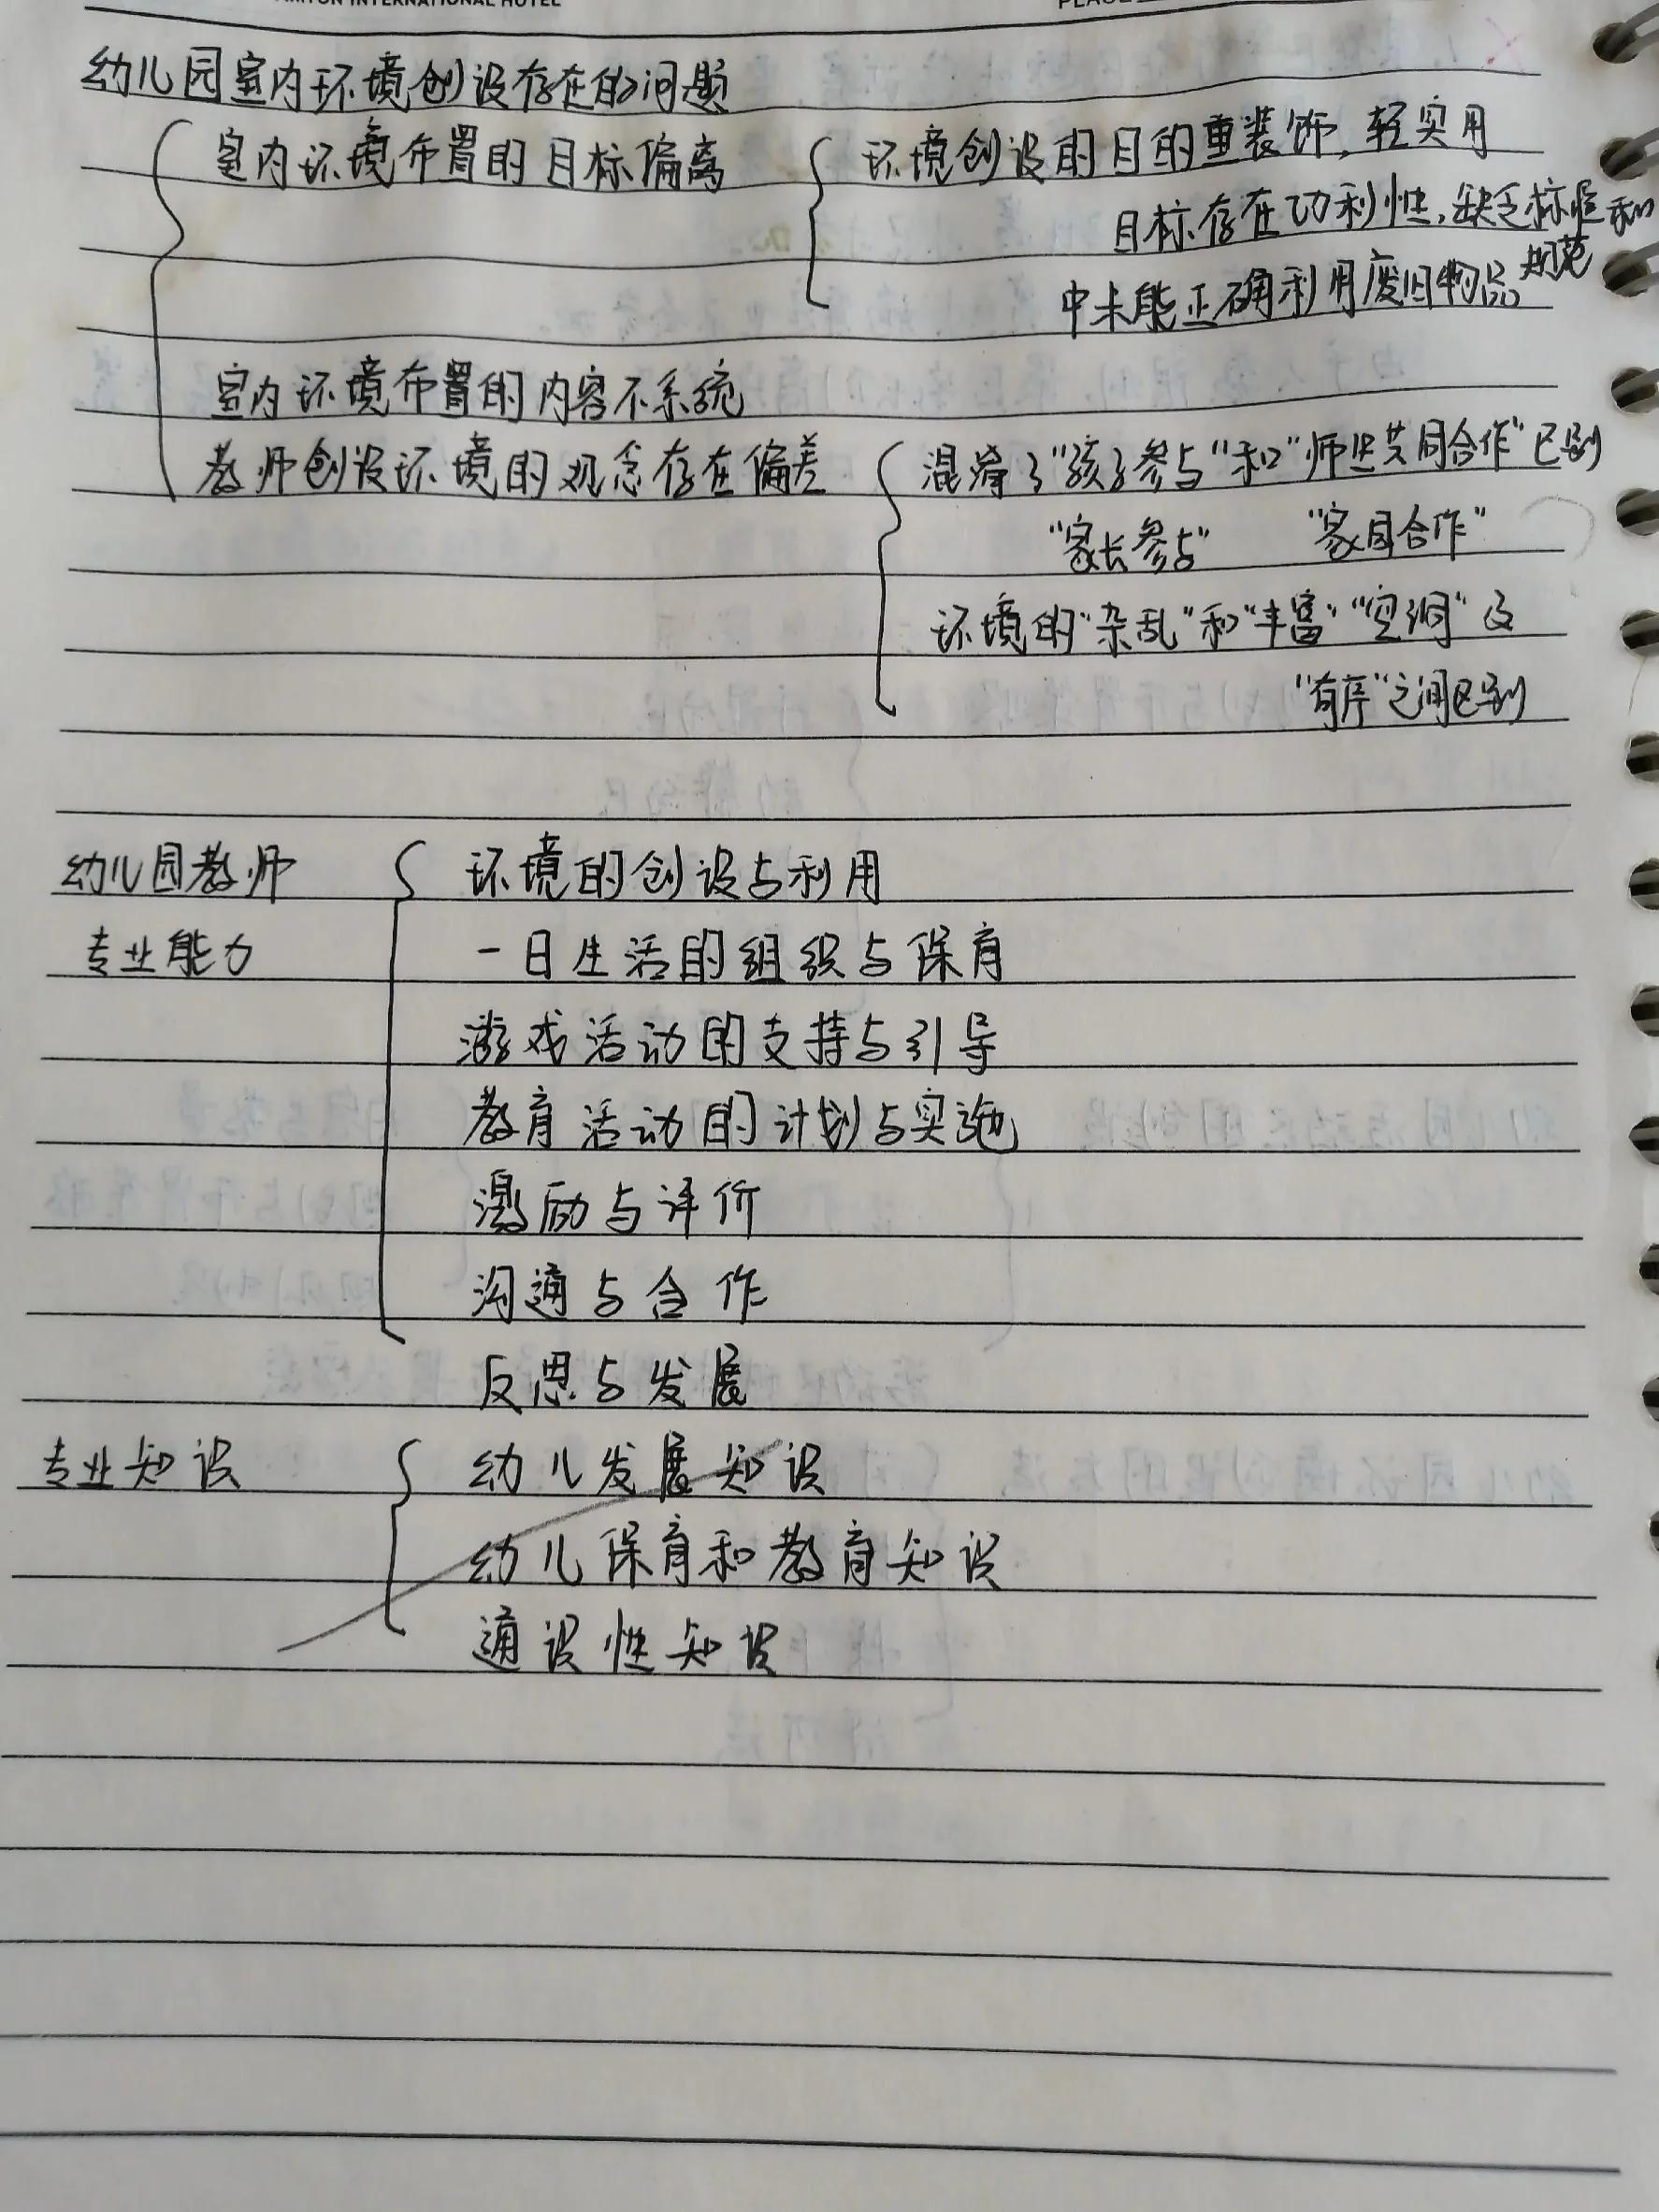 INTERNATIONAL HOTEL
幼儿园室内环境创设存在的问题
室内环境布置的目标偏离
环境创设的目的重装饰，轻实用
目标存在功利性，缺乏标准和
规范
中未能正确利用废旧物品
室内环境布置的内容不系统
教师创设环境的观念存在偏差
混淆了“孩子参与”和“师生共同合作”区别
“家长参与” “家园合作”
环境的“杂乱”和“丰富”“空洞”及
“有序”之间区别
幼儿园教师
环境的创设与利用
专业能力
一日生活的组织与保育
游戏活动的支持与引导
教育活动的计划与实施
激励与评价
沟通与合作
反思与发展
专业知识
幼儿发展知识
幼儿保育和教育知识
通识性知识